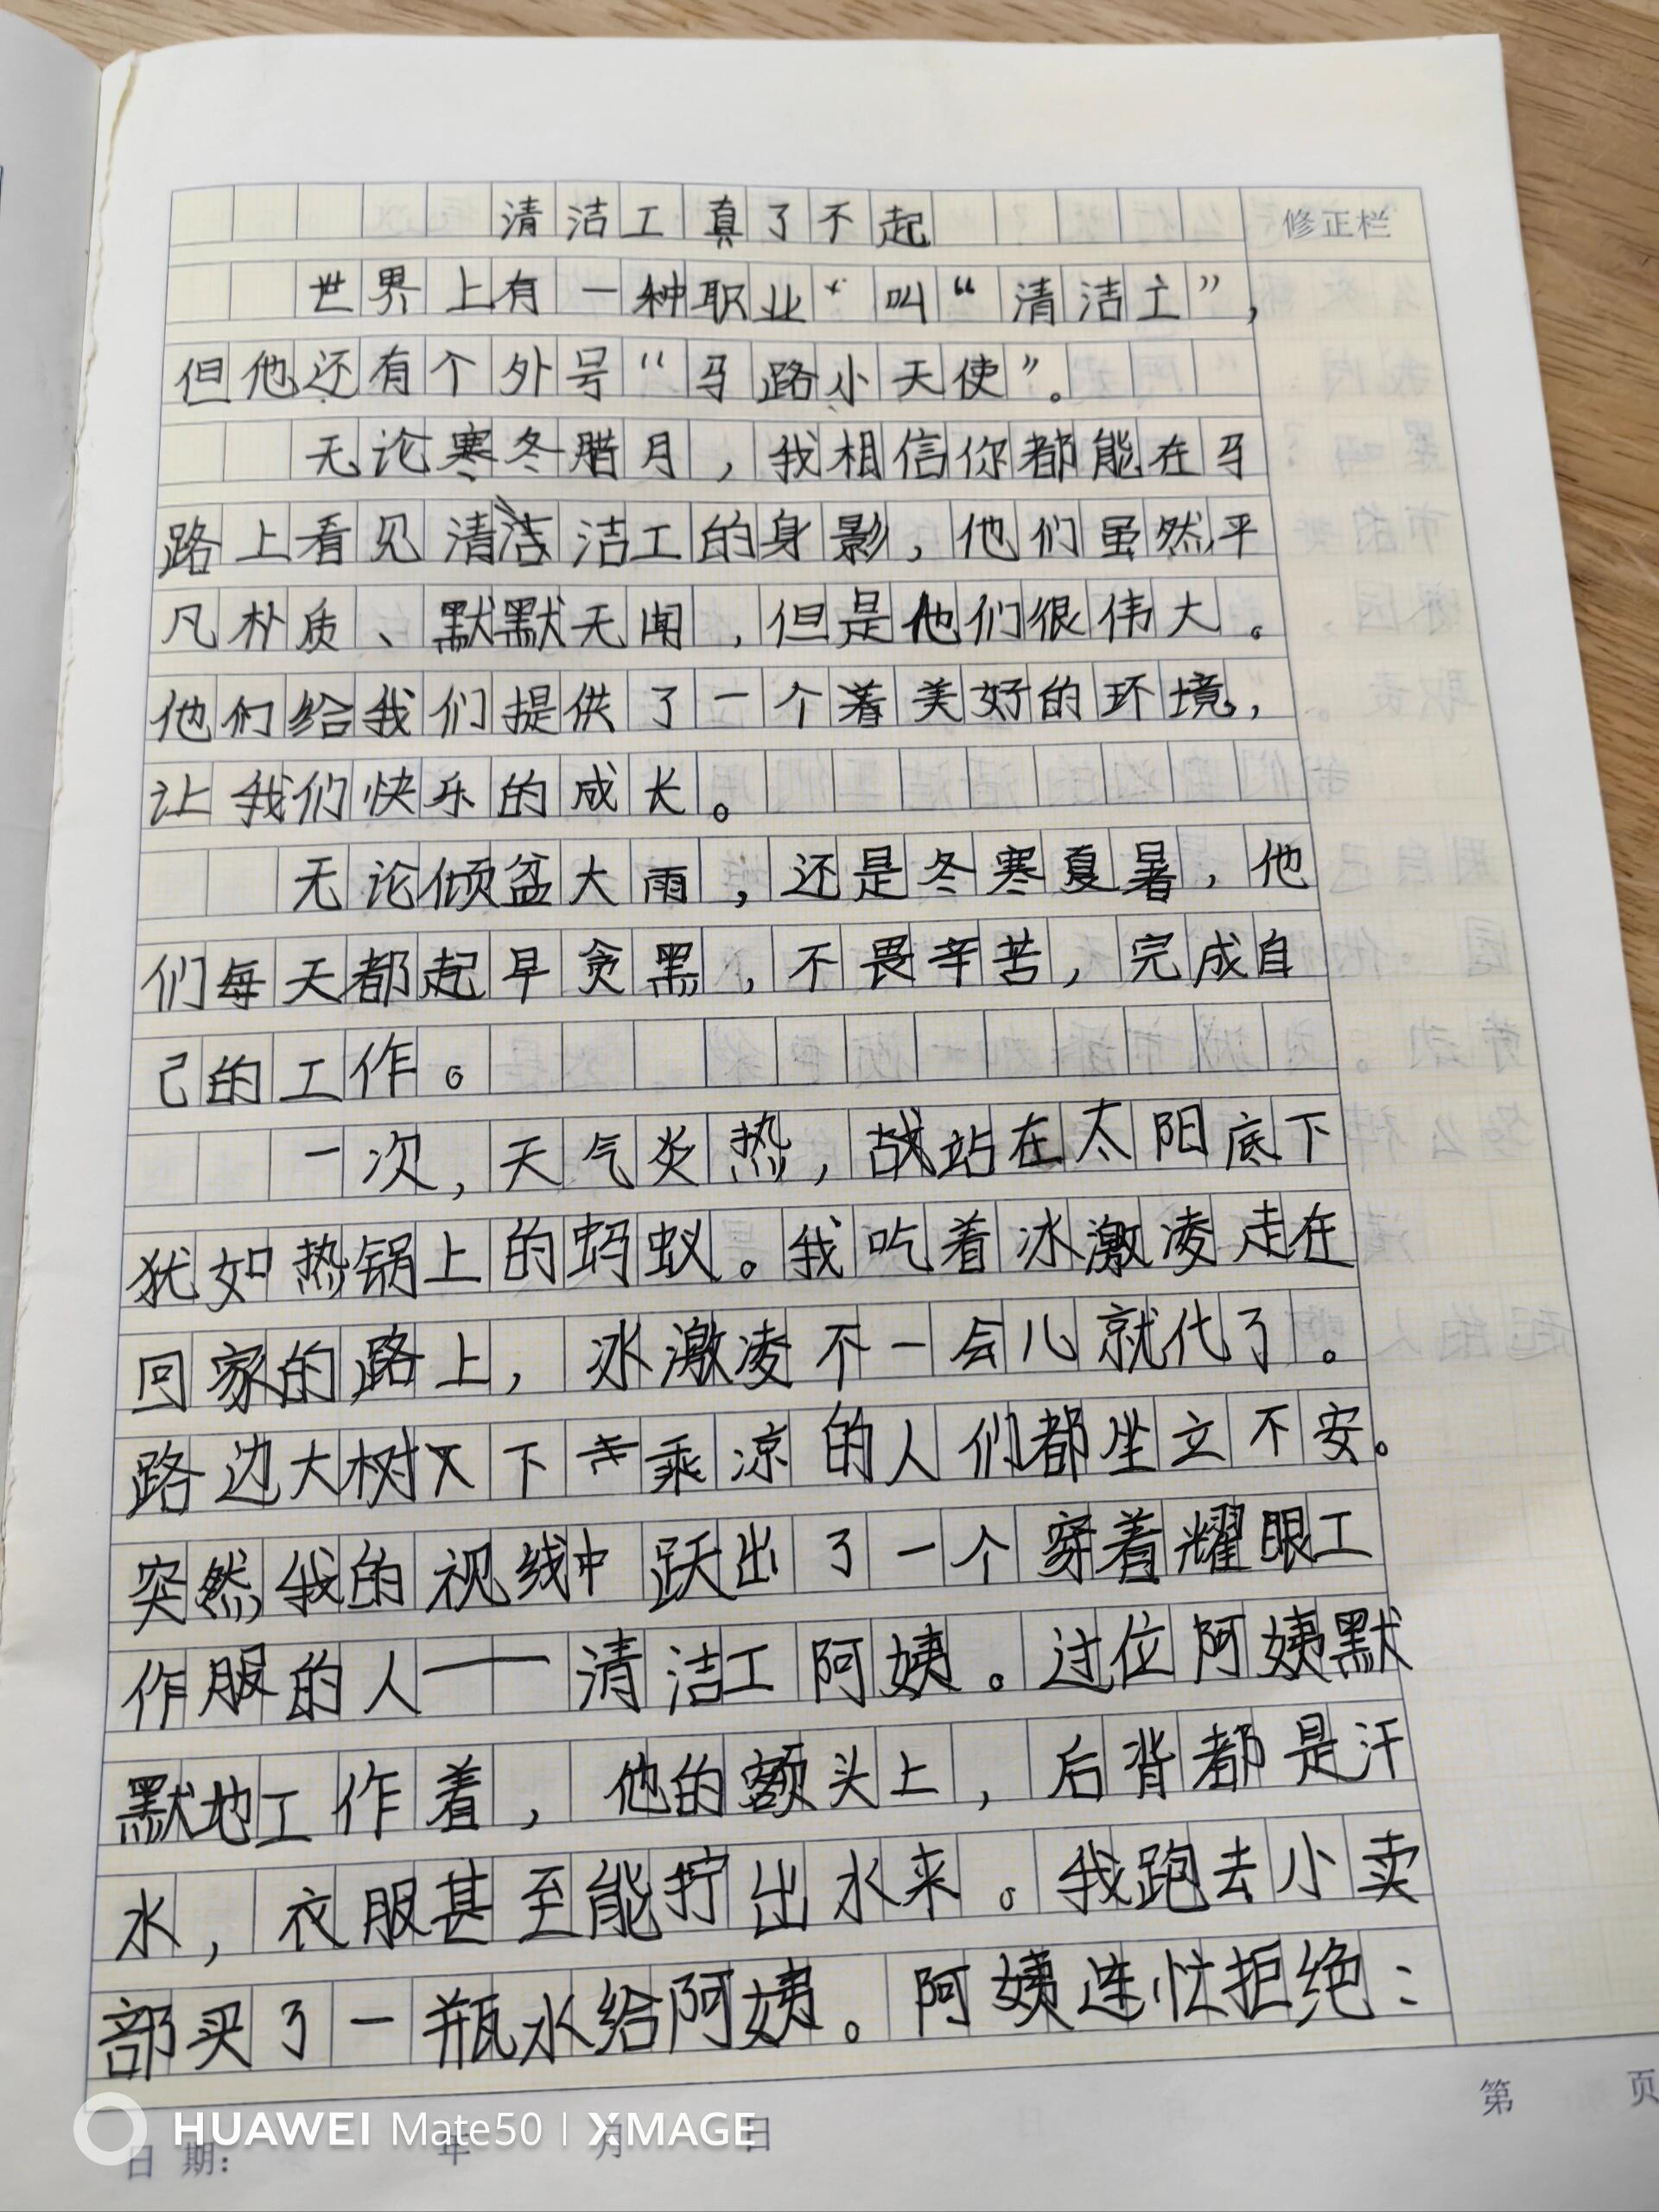 清洁工真了不起
修正栏
世界上有一种职业 叫“清洁工”，
但他还有个外号“马路小天使”。
无论寒冬腊月，我相信你都能在马
路上看见清洁工的身影，他们虽然平
凡朴质、默默无闻，但是他们很伟大。
他们给我们提供了一个着美好的环境，
让我们快乐的成长。
无论倾盆大雨，还是冬寒夏暑，他
们每天都起早贪黑，不畏辛苦，完成自
己的工作。
一次，天气炎热，我站在太阳底下
犹如热锅上的蚂蚁。我吃着冰激凌走在
回家的路上，冰激凌不一会儿就化了。
路边大树下乘凉的人们都坐立不安。
突然我的视线中跃出了一个穿着耀眼工
作服的人——清洁工阿姨。过位阿姨默
默地工作着，他的额头上，后背都是汗
水，衣服甚至能拧出水来。我跑去小卖
部买了一瓶水给阿姨。阿姨连忙拒绝：
第 页
日期： 年 月 日
HUAWEI Mate50 | XMAGE